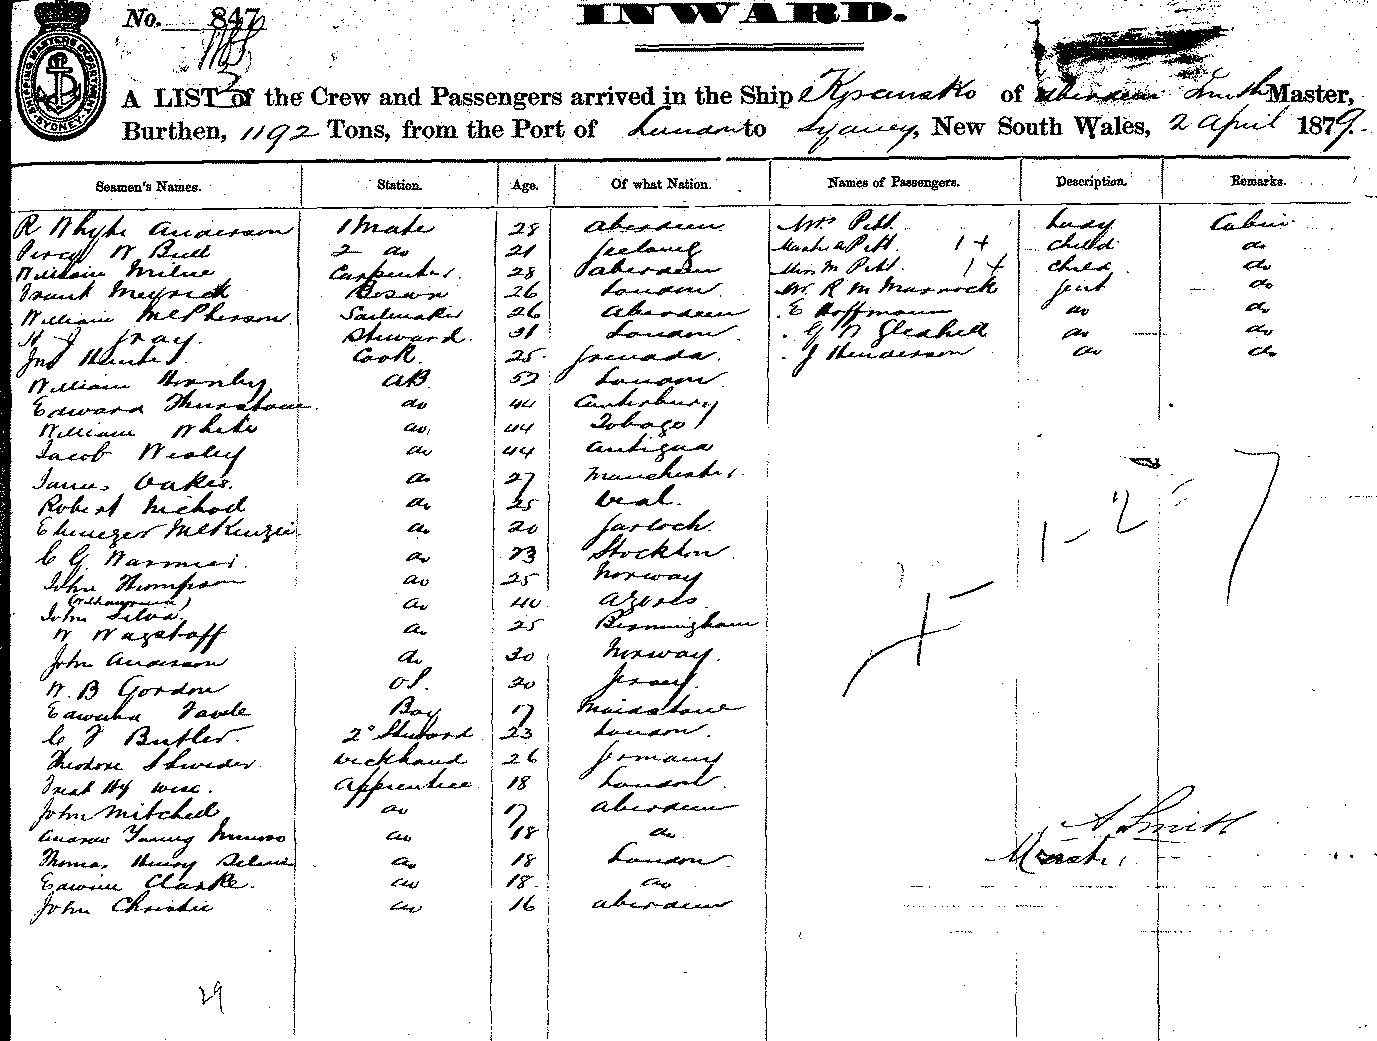 No. 847
INWARD.
SHIPPING MASTERS DEPARTMENT SYDNEY
A LIST of the Crew and Passengers arrived in the Ship of Aberdeen Smith Master,
Burthen, 1192 Tons, from the Port of London to Sydney, New South Wales, 2 April 1879.
Seamen's Names. Station. Age. Of what Nation. Names of Passengers. Description. Remarks.
R Whyte Anderson 1 Mate 28 Aberdeen Mrs Pitt Lady Cabin
Percy W Bull 2 do 21 Pitt 1+ Child do
William Milne Carpenter 28 Aberdeen Miss M Pitt 1+ Child do
Frank Meyrick Bosun 26 London Mr R M Murnock Gent do
William McPherson Sailmaker 26 Aberdeen E Hoffmann do do
H J Gray Steward 31 London G N do do
Jno Cook 25 Grenada J Henderson do do
William Hornby AB 52 London
Edward Thurstone do 44 Canterbury
William White do 44 Tobago
Jacob Wesley do 44 Antigua
James Oakes do 27 Manchester
Robert do 25 Deal
Ebenezer McKenzie do 20 Garloch
C G do 23 Stockton
John Thompson do 25 Norway
John Silva do 40 Azores
W Wagstaff do 25 Birmingham
John Anderson do 30 Norway
W. B Gordon OS. 20 Jersey
Edward Boy 17 Maidstone
C F Butler 2d Steward 23 London
Theodore Deckhand 26 Germany
Fredk Hy Wise Apprentice 18 London
John Mitchell do 17 Aberdeen
Andrew Young Munro do 18 do
Thomas Henry do 18 London
Edwin Clarke do 18 do
John Christie do 16 Aberdeen
1 - 2 = 7
A. Smith
Master
29